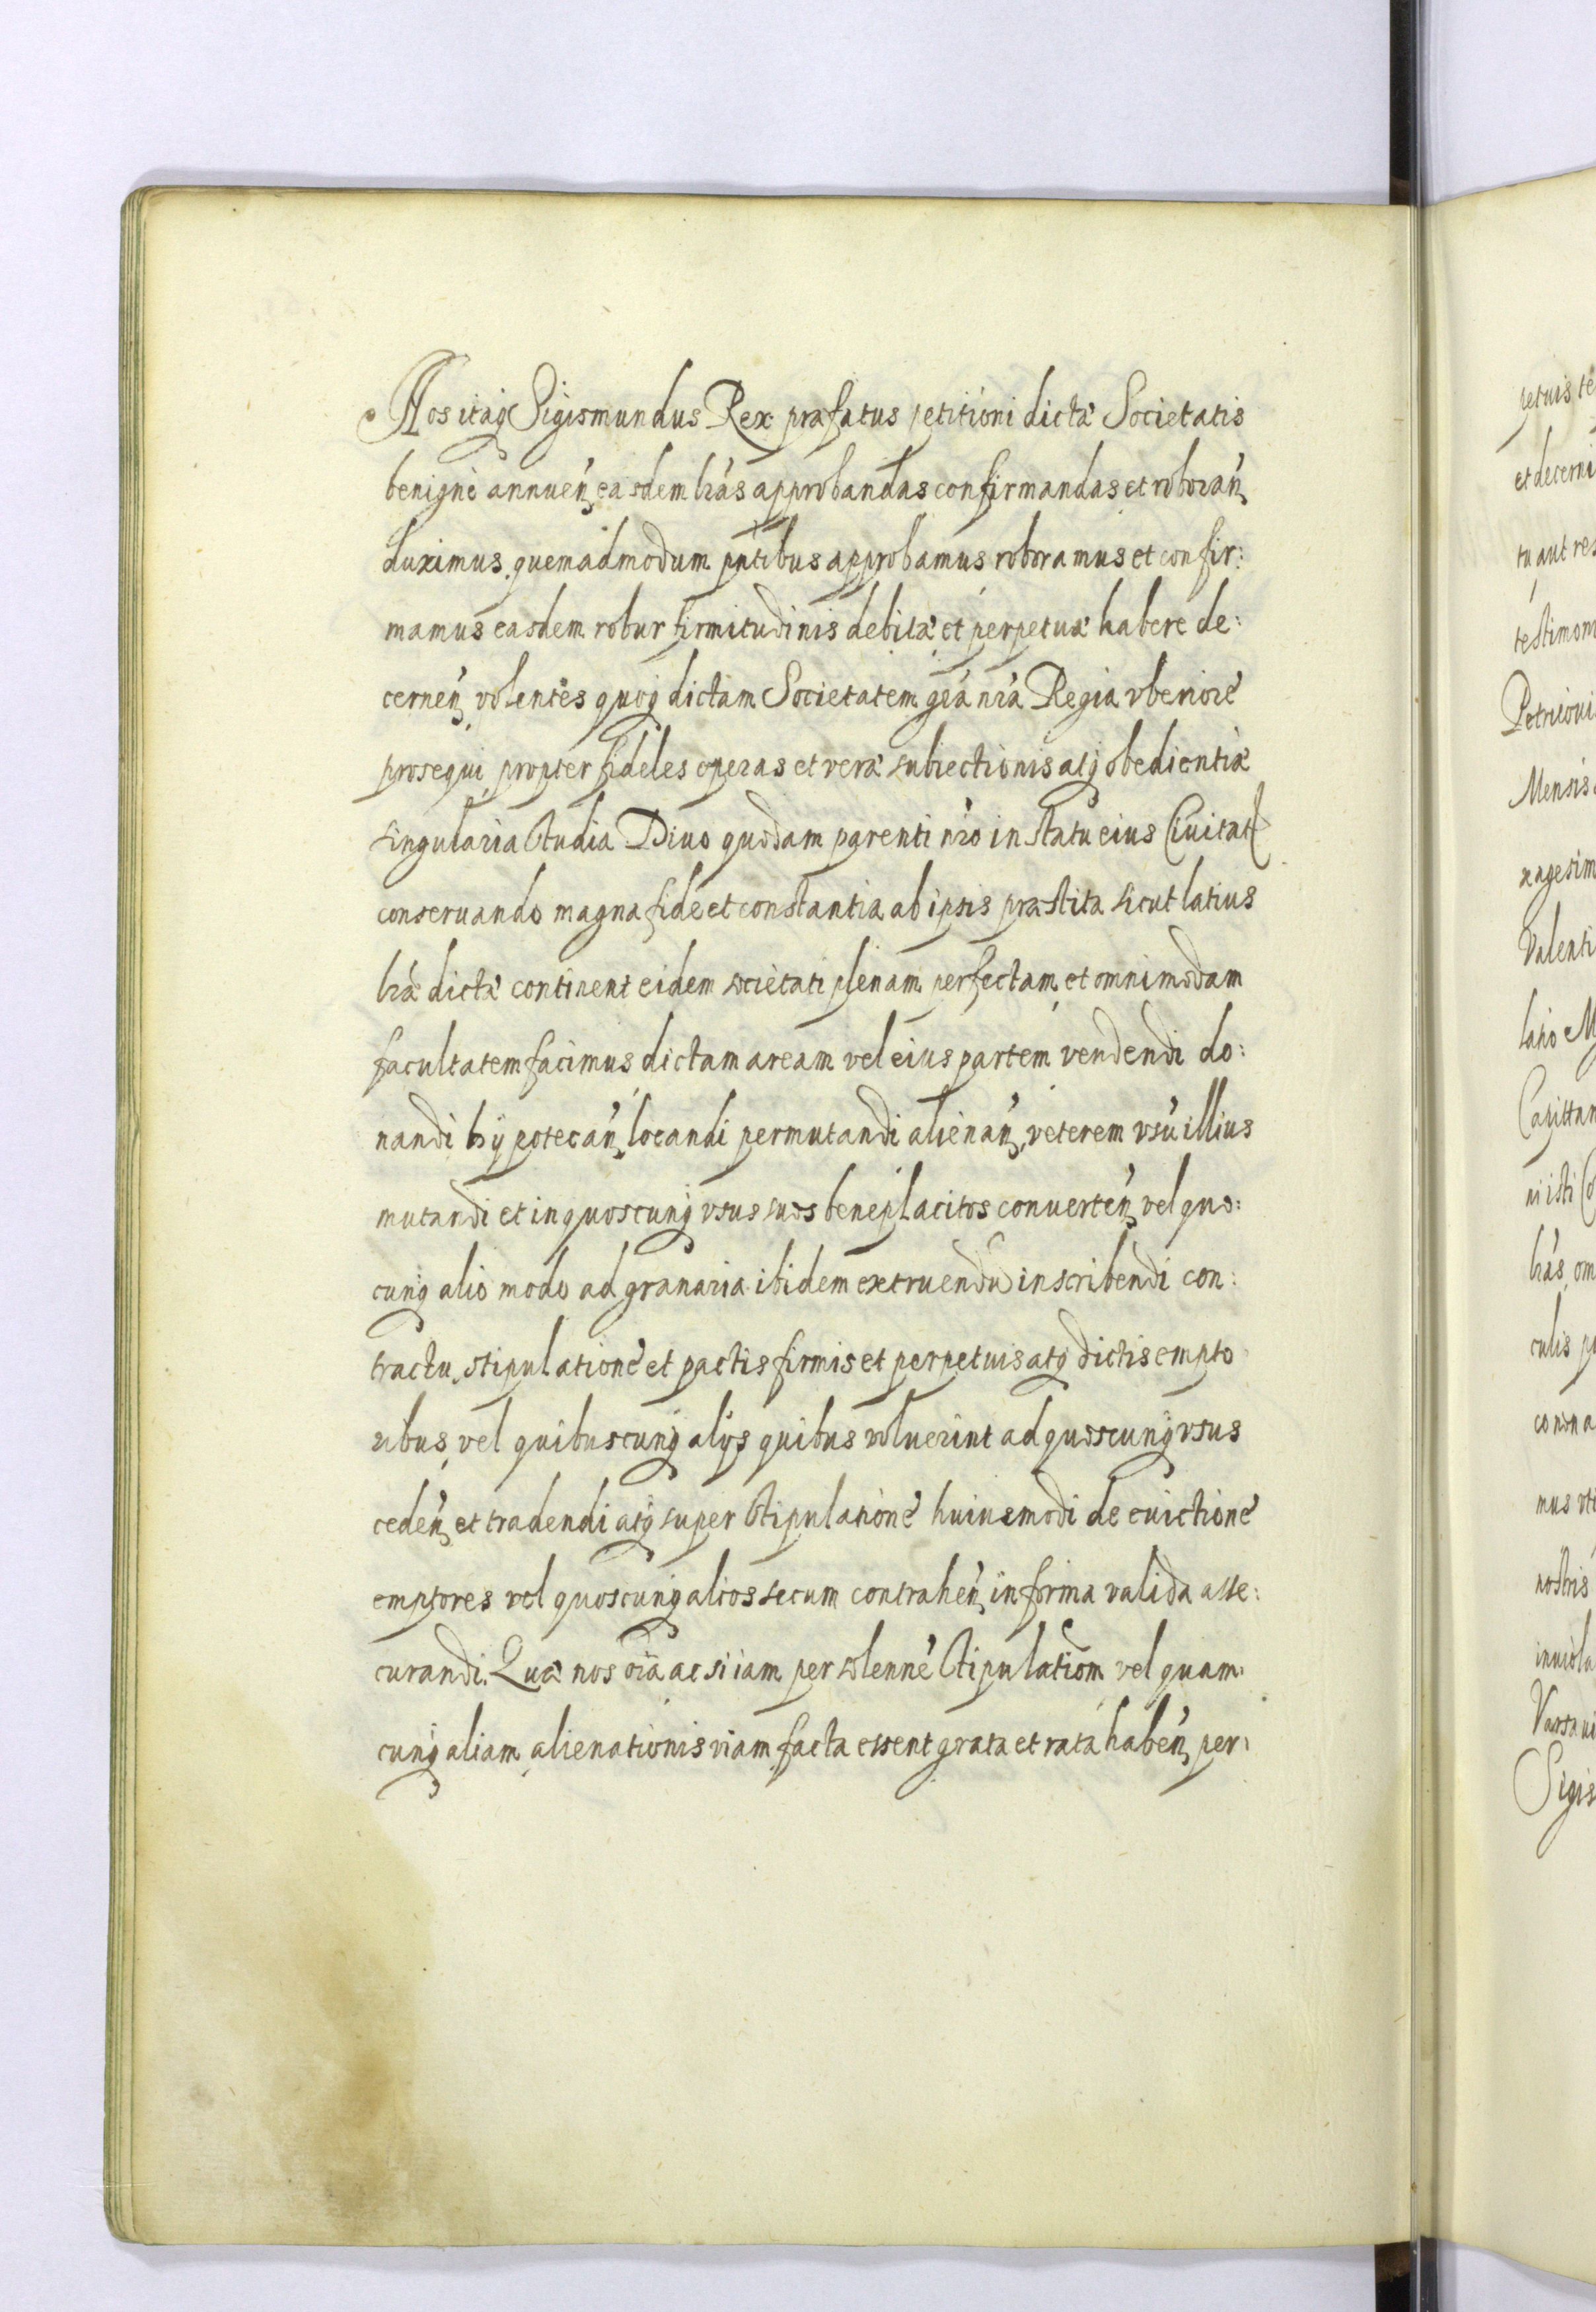 Nos itaq Sigismundus Rex præfatus petitioni dictæ Societatis
benignè annuen̄, easdem lr̄as approbandas confirmandas et roboran̄,
duximus, quemadmodum pn̄tibus approbamus roboramus et confir:
mamus easdem robur firmitudinis debitæ et perpetuæ habere de:
cernen̄, volentes quoq dictam Societatem gr̄a nr̄a Regia vberiore
prosequi, propter fideles operas et veræ subiectionis atq obedientiæ
singularia studia Diuo quodam parenti nr̄o in statu eius Ciuitat
conseruando magna fide et constantia ab ipsis præstita sicut latius
lr̄æ dictæ continent eidem societati plenam, perfectam, et omnimodam
facultatem facimus dictam aream vel eius partem vendendi do:
nandi hÿpotecan̄, locandi permutandi alienan̄, veterem vsū illius
mutandi et in quoscunq vsus suos beneplacitos conuerten̄, vel quo:
cunq alio modo ad granaria ibidem extruendū inscribendi con:
tractu, stipulatione et pactis firmis et perpetuis atq dictis empto
ribus, vel quibuscunq alÿs quibus voluerint ad quoscunq vsus
ceden̄, et tradendi atq super stipulatione huiusmodi de euictione
emptores vel quoscunq alios secum contrahen̄, in forma valida asse:
curandi. Quæ nos oīa ac si iam per solenne stipulatiōm vel quam:
cunq aliam alienationis viam facta essent grata et rata haben̄, per:
et decerni
tu aut res
testimon
Petricoui
Mensis
xagesim
Valenti
latio M
Capittan
ni isti
lr̄as, om
culis p
conona
mus vti
nostris
inuiola
Varsaui
Sigis